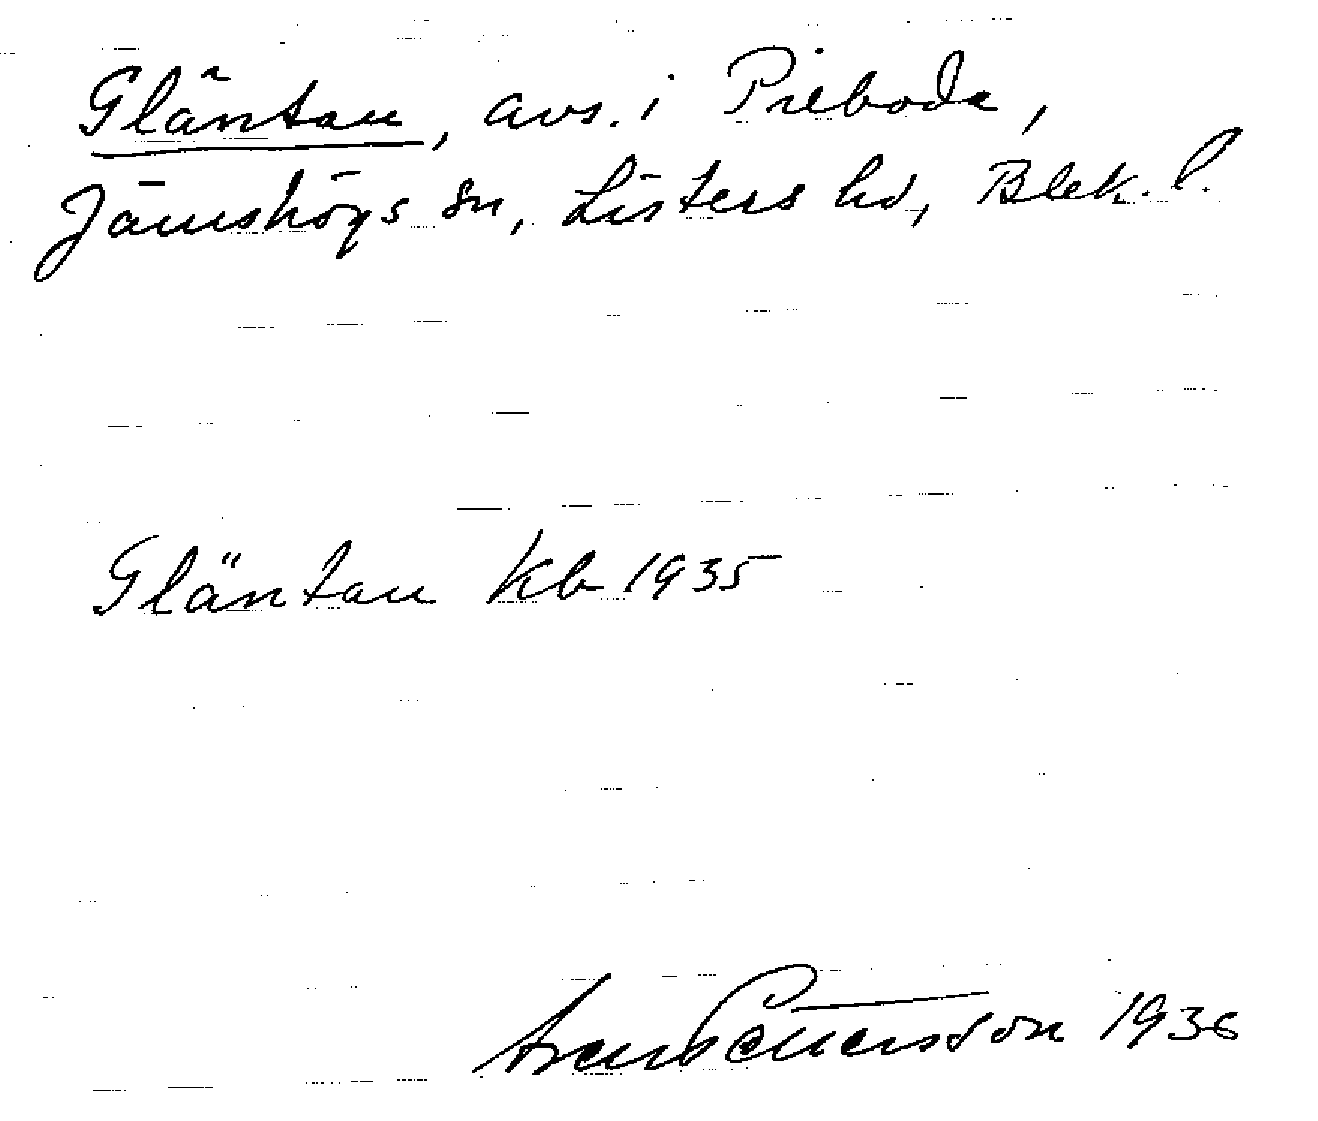 Gläntan, avs. i Prebode,
Jämshögs sn, Listers hd, Blek. l.
Gläntan Kb 1935
Pettersson 1936